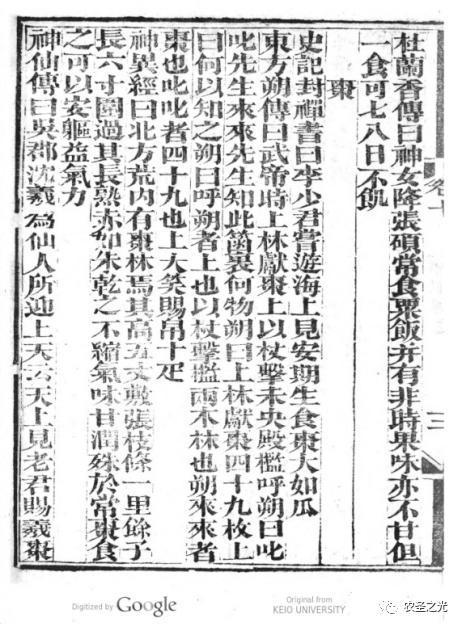 杜蘭香傳曰神女降張碩常食粟飯并有非時果味亦不甘但
一食可七八日不飢
棗
史記封禪書曰李少君嘗遊海上見安期生食棗大如瓜
東方朔傳曰武帝時上林獻棗上以杖擊未央殿檻呼朔曰叱
叱先生來來先生知此篋裏何物朔曰上林獻棗四十九枚上
曰何以知之朔曰呼朔者上也以杖擊檻兩木林也朔來來者
棗也叱叱者四十九也上大笑賜帛十疋
神異經曰北方荒內有棗林焉其高五丈敷張枝條一里餘子
長六寸圍過其長熟亦如朱乾之不縮氣味甘潤殊於常棗食
之可以安軀益氣力
神仙傳曰吳郡沈羲為仙人所迎上天云天上見老君賜羲棗
卷十
Digitized by Google
Original from
KEIO UNIVERSITY
农圣之光